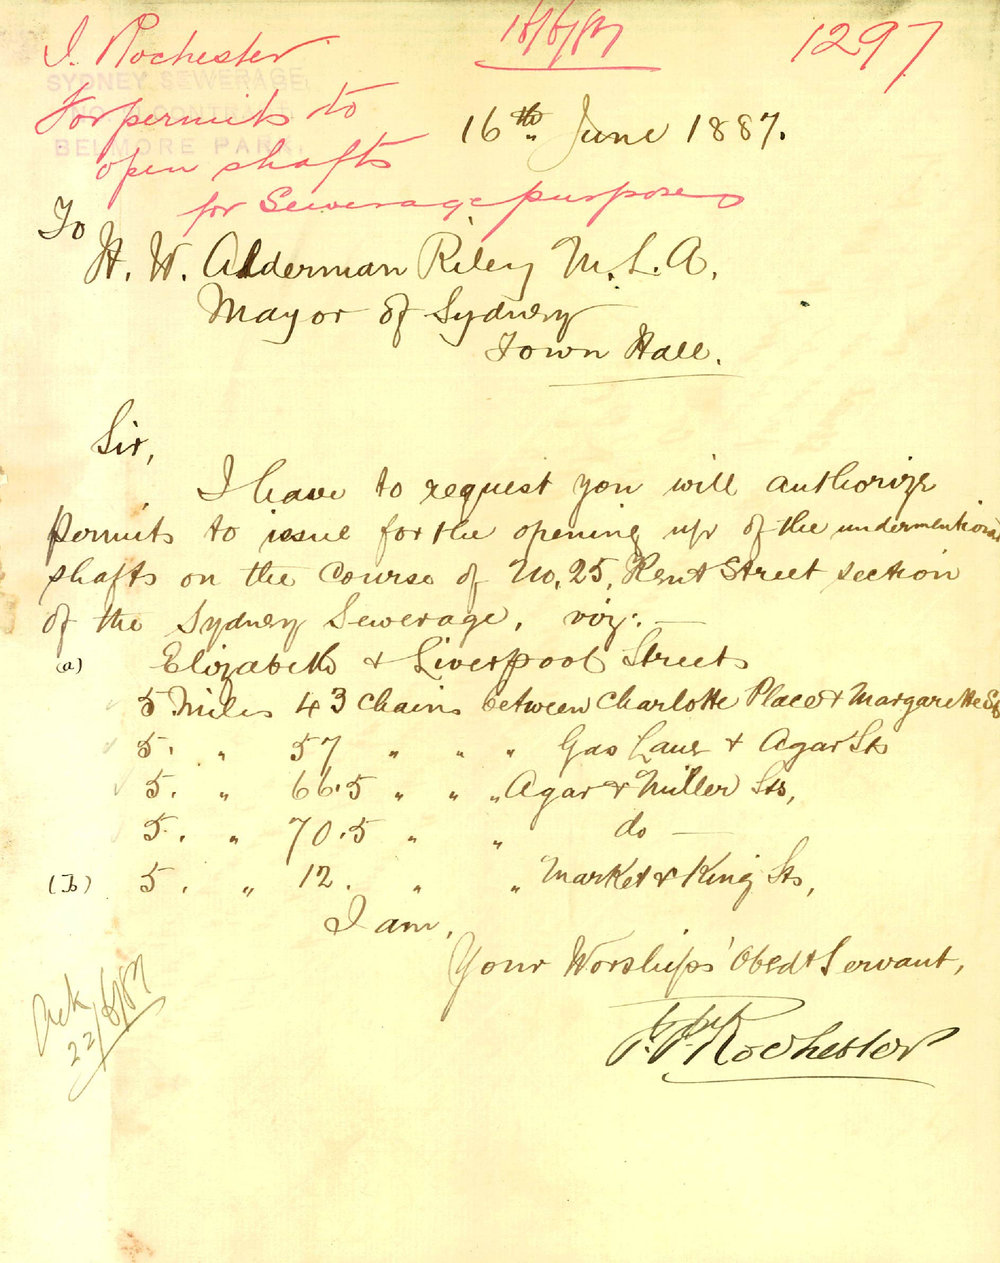 J. Rochester
18/6/87
1297
SYDNEY SEWERAGE,
CONTRACT
BELMORE PARK.
For permits to
open shafts
for Sewerage purposes
16th June 1887.
To
H. W. Alderman Riley M.L.A,
Mayor of Sydney
Town Hall.
Sir,
I have to request you will authorize
permits to issue for the opening up of the undermentioned
shafts on the Course of No. 25, Kent Street section
of the Sydney Sewerage, viz:—
(a) Elizabeth & Liverpool Streets
5 Miles 43 Chains between Charlotte Place & Margarette Sts
5. " 57 " " " Gas Lane & Agar Sts
5. " 66.5 " " " Agar & Miller Sts,
5. " 70.5 " " do —
(b) 5. " 12. " " Market & King Sts,
I am,
Your Worships' Obedt Servant,
Rochester
Ack
22/6/87